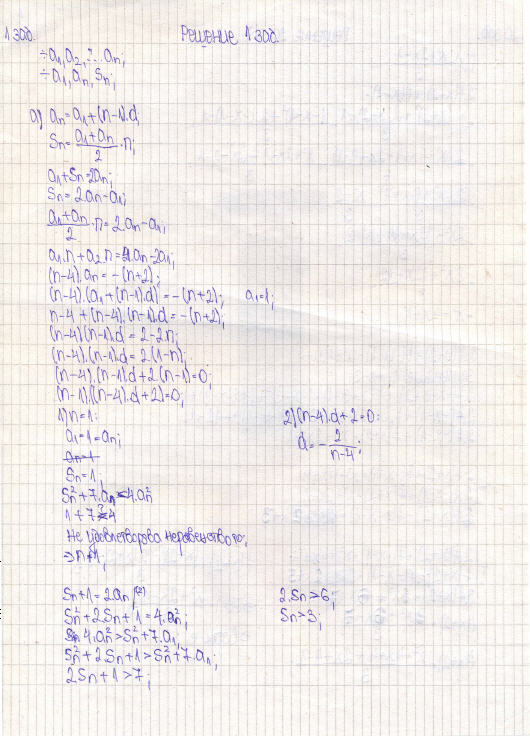 1 зад. Решение 1 зад.
÷a₁, a₂, ?.. aₙ;
÷a₁, aₙ, Sₙ;
а) aₙ = a₁ + (n-1).d;
Sₙ = (a₁ + aₙ)/2 . n;
a₁ + Sₙ = 2aₙ;
Sₙ = 2.aₙ - a₁;
(a₁ + aₙ)/2 . n = 2.aₙ - a₁;
a₁.n + a₂.n = 4aₙ - 2a₁;
(n-4).aₙ = -(n+2);
(n-4).(a₁ + (n-1).d) = -(n+2); a₁ = 1;
n-4 + (n-4).(n-1).d = -(n+2);
(n-4)(n-1).d = 2-2.n;
(n-4).(n-1).d = 2.(1-n);
(n-4).(n-1).d + 2(n-1) = 0;
(n-1).((n-4).d + 2) = 0;
1) n = 1: 2) (n-4).d + 2 = 0:
a₁ = 1 = aₙ; d = - 2/(n-4);
aₙ = 1
Sₙ = 1;
Sₙ² + 7.aₙ < 4.aₙ²
1 + 7 ?< 4
Не удовлетворява неравенството;
⇒ n ≠ 1;
Sₙ + 1 = 2aₙ |(2) 2.Sₙ > 6;
Sₙ² + 2Sₙ + 1 = 4.aₙ²; Sₙ > 3;
4.aₙ² > Sₙ² + 7.a₁
Sₙ² + 2Sₙ + 1 > Sₙ² + 7.a₁;
2Sₙ + 1 > 7;